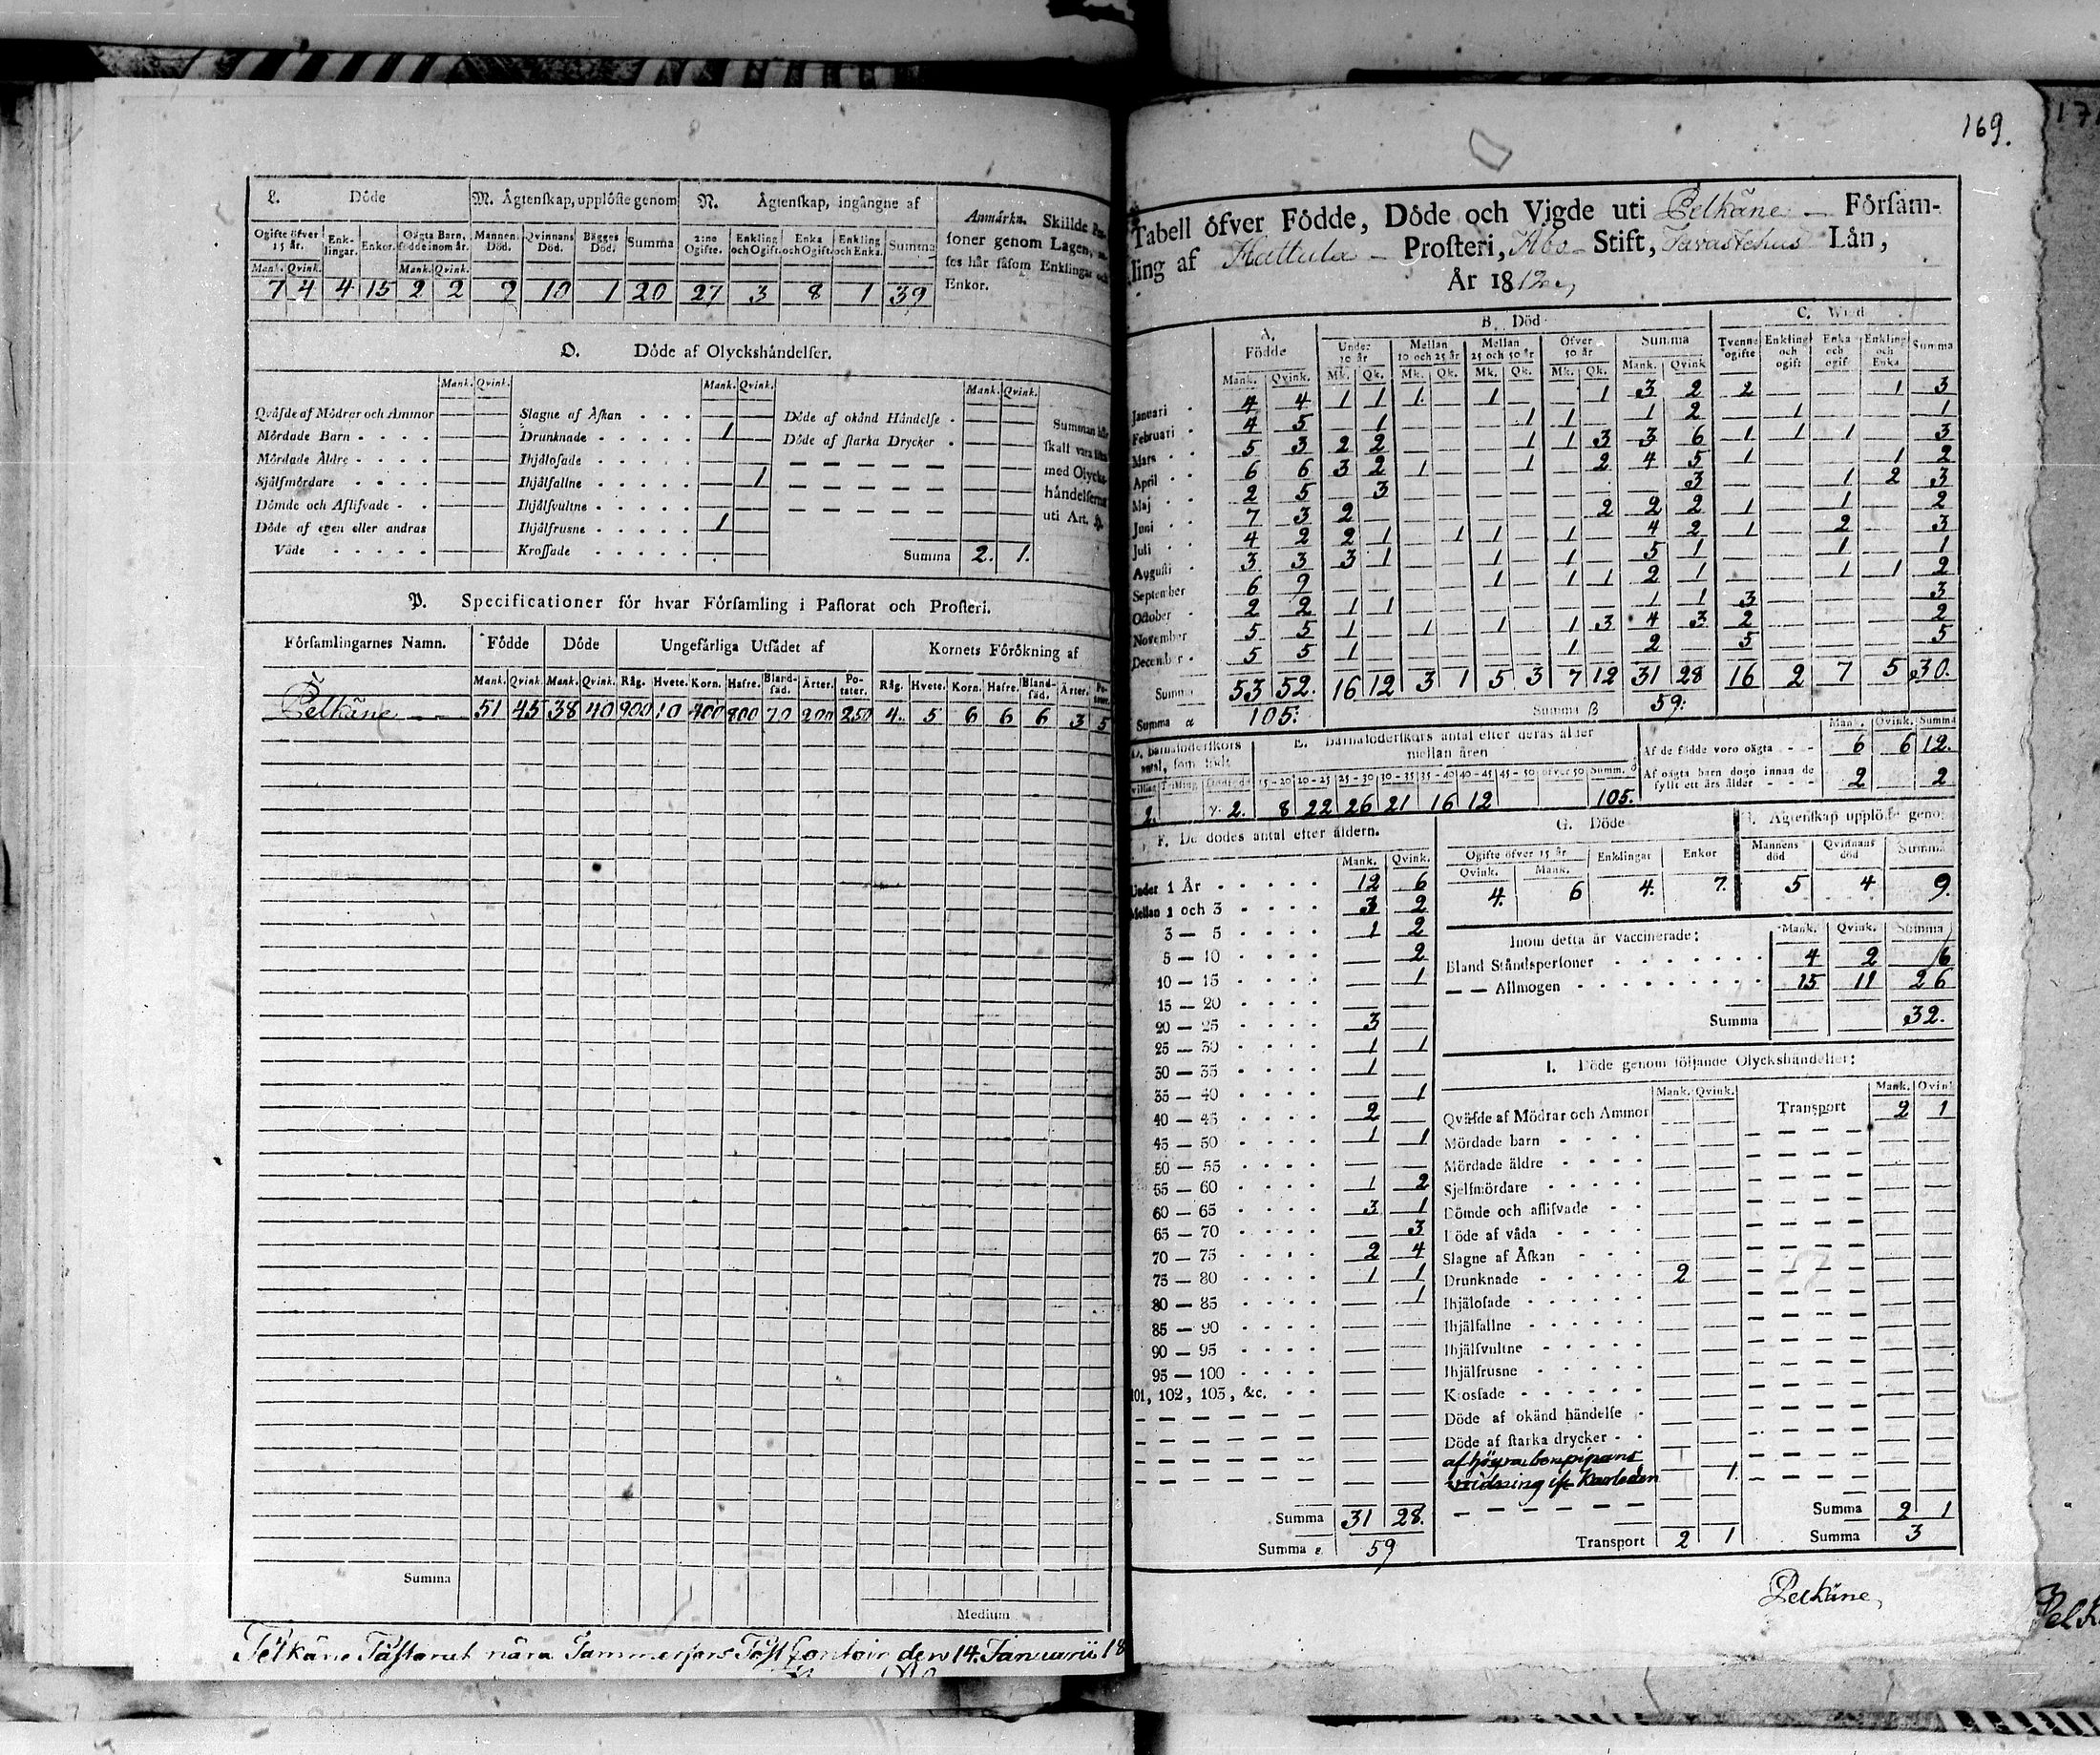 L. Döde
M. Ägtenskap, upplöste genom
N. Ägtenskap, ingångne af
Anmärkn. Skillde
soner genom Lagen,
ses här såsom Enklingar och
Enkor.
Ogifte öfver 15 år. Enklingar. Enkor. Oägta Barn, födde inom år. Mannen Död. Qvinnans Död. Bägges Död. Summa 2:ne Ogifte. Enkling och Ogift. Enka och Ogift. Enkling och Enka. Summa
Mank. Qvink. Mank. Qvink.
7 4 4 15 2 2 9 10 1 20 27 3 8 1 39
O. Döde af Olyckshändelser.
Mank. Qvink. Mank. Qvink. Mank. Qvink.
Qväfde af Mödrar och Ammor — — Slagne af Åskan . . . — — Döde af okänd Händelse . — —
Mördade Barn . . . . — — Drunknade . . . . . 1 — Döde af starka Drycker . — —
Mördade Äldre . . . . — — Ihjälosade . . . . . — —
Sjålfmördare . . . . — — Ihjälfallne . . . . . — 1
Dömde och Aflifvade . . — — Ihjälsvultne . . . . . — —
Döde af egen eller andras Ihjälfrusne . . . . . 1 —
Våde . . . . . — — Krossade . . . . . Summa 2. 1.
Summan
skall vara
med Olycks-
händelserne
uti Art.
P. Specificationer för hvar Församling i Pastorat och Prosteri.
Församlingarnes Namn. Födde Döde Ungefärliga Utsädet af Kornets Förökning af
Mank. Qvink. Mank. Qvink. Råg. Hvete. Korn. Hafre. Blandsäd. Ärter. Potater. Råg. Hvete. Korn. Hafre. Blandsäd. Ärter.
Pelkäne — — 51 45 38 40 900 10 400 800 70 200 250 4. 5 6 6 6 3 5
Summa
Medium
Pelkäne Pastorat nära Tammerfors Post Contoir den 14. Januarii 18
169.
Tabell öfver Födde, Döde och Vigde uti Pelkäne — Församling af Hattula — Prosteri, Abo Stift, Tavastehus Län,
År 1812
A. Födde B. Död C. Wigd
Under 10 år Mellan 10 och 25 år Mellan 25 och 50 år Öfver 50 år Summa Tvenne ogifte Enkling och ogift Enka och ogift Enkling och Enka Summa
Mank. Qvink. Mk. Qk. Mk. Qk. Mk. Qk. Mk. Qk. Mank. Qvink
Januari . 4 4 1 1 1 — 1 — — 1 3 2 2 — — 1 3
Februari . 4 5 — 1 — — — 1 1 — 1 2 — 1 — — 1
Mars . . 5 3 2 2 — — — 1 1 3 3 6 1 1 1 — 3
April . . 6 6 3 2 1 — — 1 — 2 4 5 1 — — 1 2
Maj . . 2 5 — 3 — — — — — — — 3 — — 1 2 3
Juni . . 7 3 2 — — — — — — 2 2 2 1 — 1 — 2
Juli . . 4 2 2 1 — 1 1 — 1 — 4 2 1 — 2 — 3
Augusti . 3 3 3 1 — — 1 — 1 — 5 1 — — 1 — 1
September 6 9 — — — — 1 — 1 1 2 1 — — 1 1 2
October . 2 2 1 1 — — — — — — 1 1 3 — — — 3
November 5 5 1 — 1 — 1 — 1 3 4 3 2 — — — 2
December . 5 5 1 — — — — — 1 — 2 — 5 — — — 5
Summa 53 52. 16 12 3 1 5 3 7 12 31 28 16 2 7 5 30.
Summa α 105: Summa β 59:
E. Barnaföderskors antal efter deras ålder mellan åren
15–20 20–25 25–30 30–35 35–40 40–45 45–50 öfver 50 Summ.
2. 2. 8 22 26 21 16 12 105.
Mank. Qvink. Summa
Af de födde voro oägta - - 6 6 12.
Af oägta barn dogo innan de fyllt ett års ålder - - - 2 2
F. De dödes antal efter åldern.
Mank. Qvink.
Under 1 År . . . . . 12 6
Mellan 1 och 3 . . . . 3 2
3 — 5 . . . . 1 2
5 — 10 . . . . — 2
10 — 15 . . . . — 1
15 — 20 . . . . — —
20 — 25 . . . . 3 —
25 — 30 . . . . 1 1
30 — 35 . . . . 1 —
35 — 40 . . . . — 1
40 — 45 . . . . 2 —
45 — 50 . . . . 1 1
50 — 55 . . . . — —
55 — 60 . . . . 1 2
60 — 65 . . . . 3 1
65 — 70 . . . . — 3
70 — 75 . . . . 2 4
75 — 80 . . . . 1 1
80 — 85 . . . . — 1
85 — 90 . . . . — —
90 — 95 . . . . — —
95 — 100 . . . . — —
101, 102, 103, &c. . . — —
Summa 31 28.
Summa ε 59
G. Döde
Ogifte öfver 15 år Enklingar Enkor
Qvink. Mank.
4. 6 4. 7.
Ägtenskap upplöste genom
Mannens död Qvinnans död Summa
5 4 9.
Inom detta år vaccinerade: Mank. Qvink. Summa
Bland Ståndspersoner . . . . . . 4 2 6
— — Allmogen . . . . . . . . 15 11 26
Summa 32.
I. Döde genom följande Olyckshändelser:
Mank. Qvink. Mank. Qvink
Qväfde af Mödrar och Ammor Transport 2 1
Mördade barn - - - -
Mördade äldre - - - -
Sjelfmördare - - - - -
Dömde och aflifvade - -
Döde af våda - - - -
Slagne af Åskan - - -
Drunknade - - - - - 2
Ihjälosade - - - - - -
Ihjälfallne - - - - - -
Ihjälsvultne - - - - -
Ihjälfrusne - - - - -
Krossade - - - - - -
Döde af okänd händelse -
Döde af starka drycker - -
af högra benpipans
vridning ur 1.
Transport 2 1
Summa 2 1
Summa 3
Pelkäne,